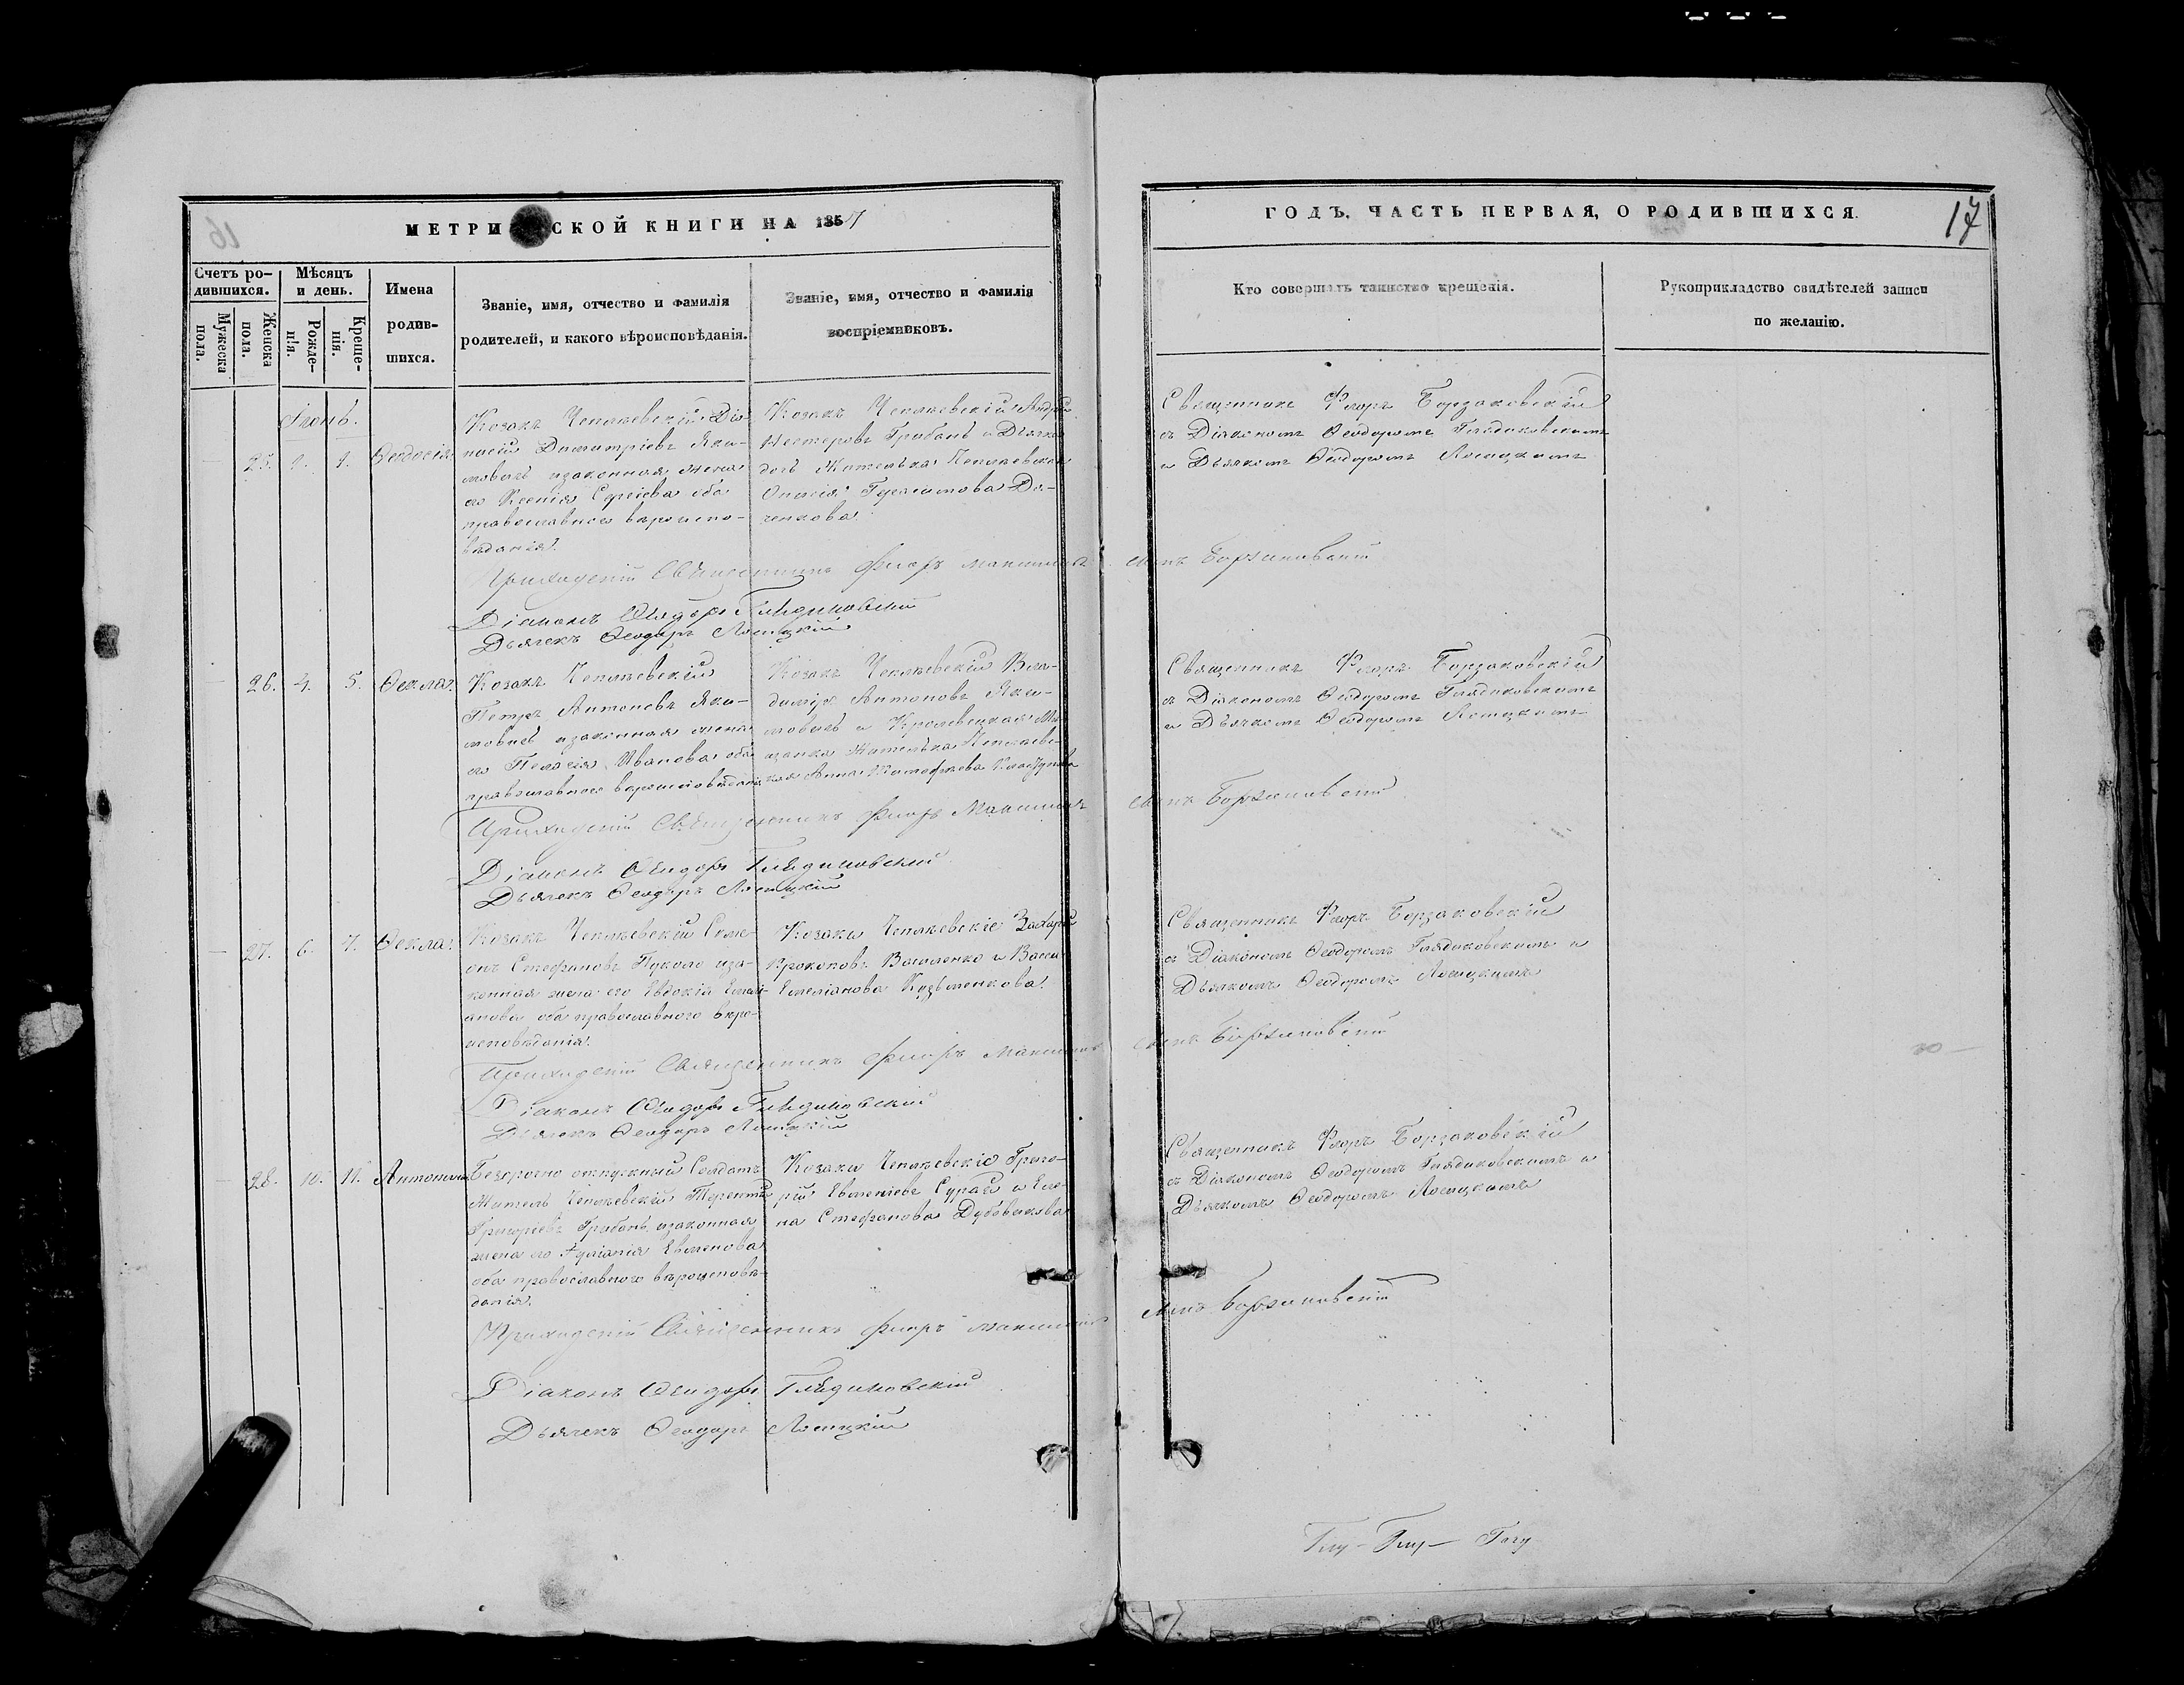 МЕТРИ СКОЙ КНИГИ НА 1857
Счетъ ро-
дившихся.
Мѣсяцъ
и день.
Имена
родив-
шихся.
Мужеска
пола.
Женска
пола.
Рожде-
нія.
Креще-
нія.
Званіе, имя, отчество и фамилія
родителей, и какого вѣроисповѣданія.
Званіе, имя, отчество и фамилія
воспріемниковъ.
Іюнь.
25. 1. 1. Ѳеодосія
Козакъ Чеплѣевскій Діо-
нисій Димитріевъ Яки-
мовыхъ изаконная жена
его Ксенія Сергіева оба
православнаго вѣроиспо-
вѣданія.
Козакъ Чеплѣевскій Андрей
Нестеровъ Грибанъ и
Жителька Чеплѣевская
ченкова.
Приходскій Священникъ Флоръ Максимов
Діаконъ Ѳеодоръ Глядиковскій
Дьячекъ Ѳеодоръ Лосицкій
26. 4. 5. Ѳекла.
Козакъ Чеплѣевскій
Петръ Антоновъ Яки-
изаконная жена
его Пелагія Иванова оба
православнаго вѣроисповѣданія
Козакъ Чеплѣевскій Вла-
диміръ Антоновъ Яки-
и Кролевецкая Мѣ-
щанка Жителька Чеплѣевс-
кая Анна
Приходскій Священникъ Флоръ Максимов
Діаконъ Ѳеодоръ Глядиковскій
Дьячекъ Ѳеодоръ Лосицкій
27. 6. 7. Ѳекла.
Козакъ Чеплѣевскій Симе-
онъ Стефановъ иза-
конная жена его Евдокія Емелі-
анова оба православнаго вѣро-
исповѣданія.
Козаки Чеплѣевскіе Захарій
Прокоповъ Василенко и Васи
Емеліанова Кузьменкова.
Приходскій Священникъ Флоръ Максимов
Діаконъ Ѳеодоръ Глядиковскій
Дьячекъ Ѳеодоръ Лосицкій
28. 10. 11. Антонина
Безсрочно отпускный Солдатъ
Житель Чеплѣевскій Терентій
Григоріевъ Грибанъ изаконная
жена его Іуліанія Евменова
оба православнаго вѣроисповѣ-
данія.
Козаки Чеплѣевскіе Григо-
рій Евменіевъ Сурай и Еле-
на Стефанова Дубовикова
Приходскій Священникъ Флоръ Максимов
Діаконъ Ѳеодоръ Глядиковскій
Дьячекъ Ѳеодоръ Лосицкій
ГОДЪ. ЧАСТЬ ПЕРВАЯ, О РОДИВШИХСЯ.
17
Кто совершалъ таинство крещенія.
Рукоприкладство свидѣтелей записи
по желанію.
Священникъ Флоръ Борзаковскій
съ Діакономъ Ѳеодоромъ Глядиковскимъ
и Дьякомъ Ѳеодоромъ Лосицкимъ
Борзаковскій
Священникъ Флоръ Борзаковскій
съ Діакономъ Ѳеодоромъ Глядиковскимъ
и Дьячкомъ Ѳеодоромъ Лосицкимъ
Борзаковскій
Священникъ Флоръ Борзаковскій
съ Діакономъ Ѳеодоромъ Глядиковскимъ и
Дьякомъ Ѳеодоромъ Лосицкимъ
Борзаковскій
Священникъ Флоръ Борзаковскій
съ Діакономъ Ѳеодоромъ Глядиковскимъ и
Дьякомъ Ѳеодоромъ Лосицкимъ
Борзаковскій